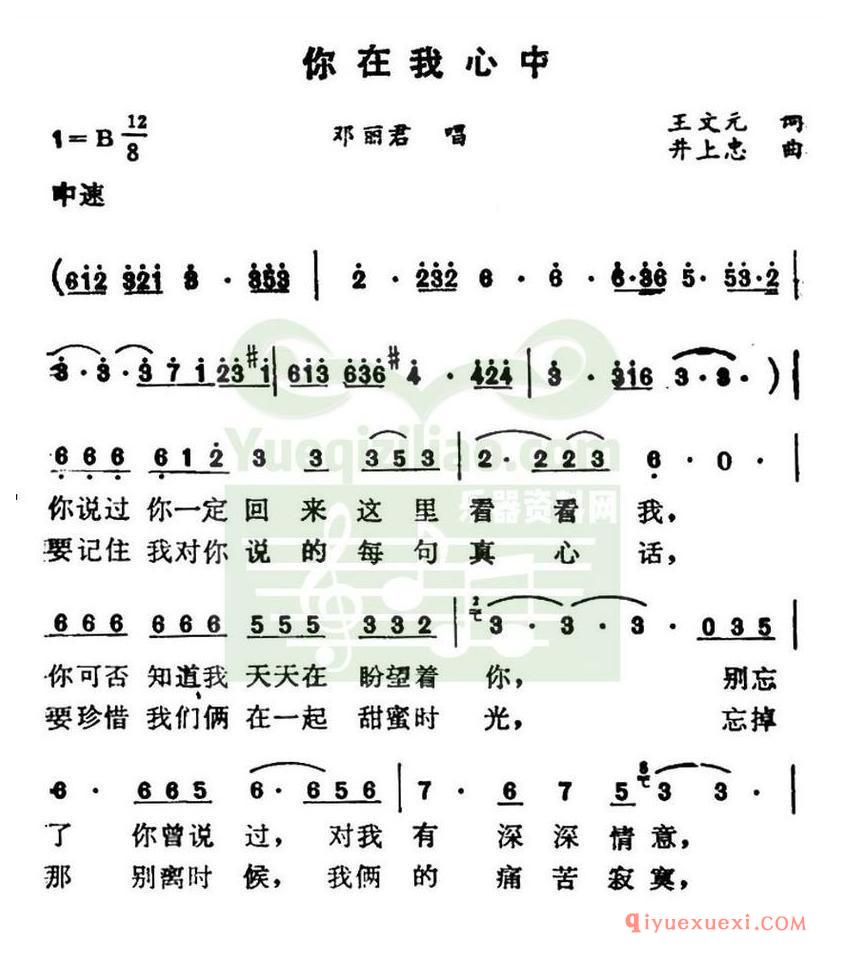 你在我心中
1=B 12/8 邓丽君 唱 王文元 词
井上忠 曲
中速
(612 321 3 · 353 | 2 · 232 6 · 6 · 6·36 5· 53·2 |
3·3·371 23#1 | 613 636 #4 · 424 | 3 · 316 3·3· ) |
666 612 3 3 353 | 2· 223 6 · 0 · |
你说过 你一定 回 来 这 里 看 看 我，
要记住 我对你 说 的 每 句 真 心 话，
666 666 555 332 | 3· 3· 3· 035 |
你可否 知道我 天天在 盼望着 你， 别忘
要珍惜 我们俩 在一起 甜蜜时 光， 忘掉
6 · 665 6· 656 | 7 · 6 7 5 3 3 · |
了 你曾说 过， 对我 有 深 深 情 意，
那 别离时 候， 我俩 的 痛 苦 寂 寞，
Yueqiziliao.com
乐器资料网
qiyuexuexi.com